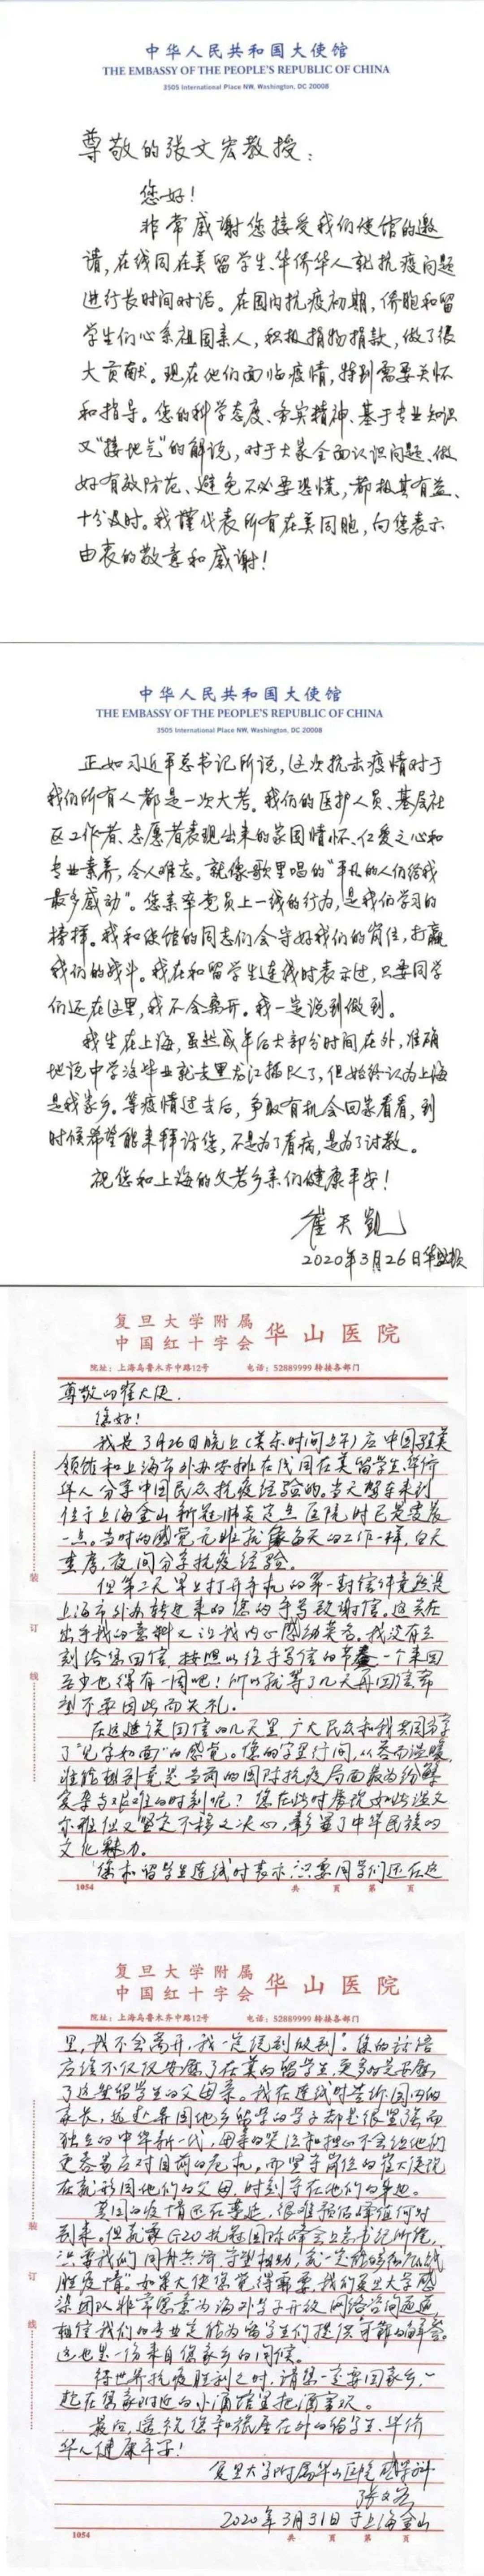 中华人民共和国大使馆
THE EMBASSY OF THE PEOPLE'S REPUBLIC OF CHINA
3505 International Place NW, Washington, DC 20008
尊敬的张文宏教授：
您好！
非常感谢您接受我们使馆的邀
请，在线同在美留学生、华侨华人就抗疫问题
进行长时间对话。在国内抗疫初期，侨胞和留
学生们心系祖国亲人，积极捐物捐款，做了很
大贡献。现在他们面临疫情，特别需要关怀
和指导。您的科学态度、务实精神、基于专业知识
又"接地气"的解说，对于大家全面认识问题、做
好有效防范、避免不必要恐慌，都极其有益、
十分及时。我谨代表所有在美同胞，向您表示
由衷的敬意和感谢！
中华人民共和国大使馆
THE EMBASSY OF THE PEOPLE'S REPUBLIC OF CHINA
3505 International Place NW, Washington, DC 20008
正如习近平总书记所说，这次抗击疫情对于
我们所有人都是一次大考。我们的医护人员、基层社
区工作者、志愿者表现出来的家国情怀、仁爱之心和
专业素养，令人难忘。就像歌里唱的"平凡的人们给我
最多感动"。您亲率党员上一线的行为，是我们学习的
榜样。我和使馆的同志们会守好我们的岗位，打赢
我们的战斗。我在和留学生连线时表示过，只要同学
们还在这里，我不会离开。我一定说到做到。
我生在上海，虽然成年后大部分时间在外，准确
地说中学没毕业就去黑龙江插队了，但始终认为上海
是我家乡。等疫情过去后，争取有机会回家看看，到
时候希望能来拜访您，不是为了看病，是为了讨教。
祝您和上海的父老乡亲们健康平安！
崔天凯
2020年3月26日华盛顿
复旦大学附属
中国红十字会 华山医院
院址：上海乌鲁木齐中路12号 电话：52889999 转接各部门
尊敬的崔大使：
您好！
我是3月26日晚上(美东时间上午)应中国驻美
领馆和上海市外办安排在线同在美留学生、华侨
华人分享中国民众抗疫经验的。当天驱车来到
位于上海金山新冠肺炎定点医院时已是凌晨
一点。当时的感觉无非就像每天的工作一样，白天
查房，夜间分享抗疫经验。
但第二天早上打开手机的第一封信件竟然是
上海市外办转过来的您的手写致谢信。这实在
出乎我的意料又让我内心感动莫名。我没有立
刻给您回信，按照以往手写信的节奏一个来回
至少也得有一周吧！所以就等了几天再回信希
望不要因此而失礼。
在这进候回信的几天里，广大民众和我共同分享
了"见字如面"的感觉。您的字里行间，从容而温暖，
谁能想到竟是当前的国际抗疫局面最为纷繁
复杂与艰难的时刻呢？您在此时展现如此温文
尔雅但又坚定不移之决心，彰显了中华民族的
文化魅力。
您和留学生连线时表示"只要同学们还在这
1054 共 页 第 页
复旦大学附属
中国红十字会 华山医院
院址：上海乌鲁木齐中路12号 电话：52889999 转接各部门
里，我不会离开，我一定说到做到"。您的话语
应该不仅仅安慰了在美的留学生，更多的是安慰
了这些留学生的父母亲。我在连线时告诉国内的
家长，远赴异国他乡留学的学子都是很坚强而
独立的中华新一代，母亲的哭泣和担心不会让他们
更容易应对目前的危机。而坚守岗位的崔大使现
在就形同他们的父母，时刻守在他们的身边。
美国的疫情还在蔓延，很难预估峰值何时
到来。但就像G20抗疫国际峰会上总书记所说，
"只要我们同舟共济、守望相助，就一定能够彻底战
胜疫情"。如果大使您觉得需要，我们复旦大学感
染团队非常愿意为海外学子开放网络咨询通道，
相信我们的专业定能为留学生们提供可靠的解答。
这也是一份来自您家乡的问候。
待世界抗疫胜利之时，请您一定要回家乡，一
起在您家附近的小酒馆里把酒言欢。
最后，遥祝您和旅居在外的留学生、华侨
华人健康平安！
复旦大学附属华山医院感染科
张文宏
2020年3月31日 于上海金山
1054 共 页 第 页
装
订
线
装
订
线